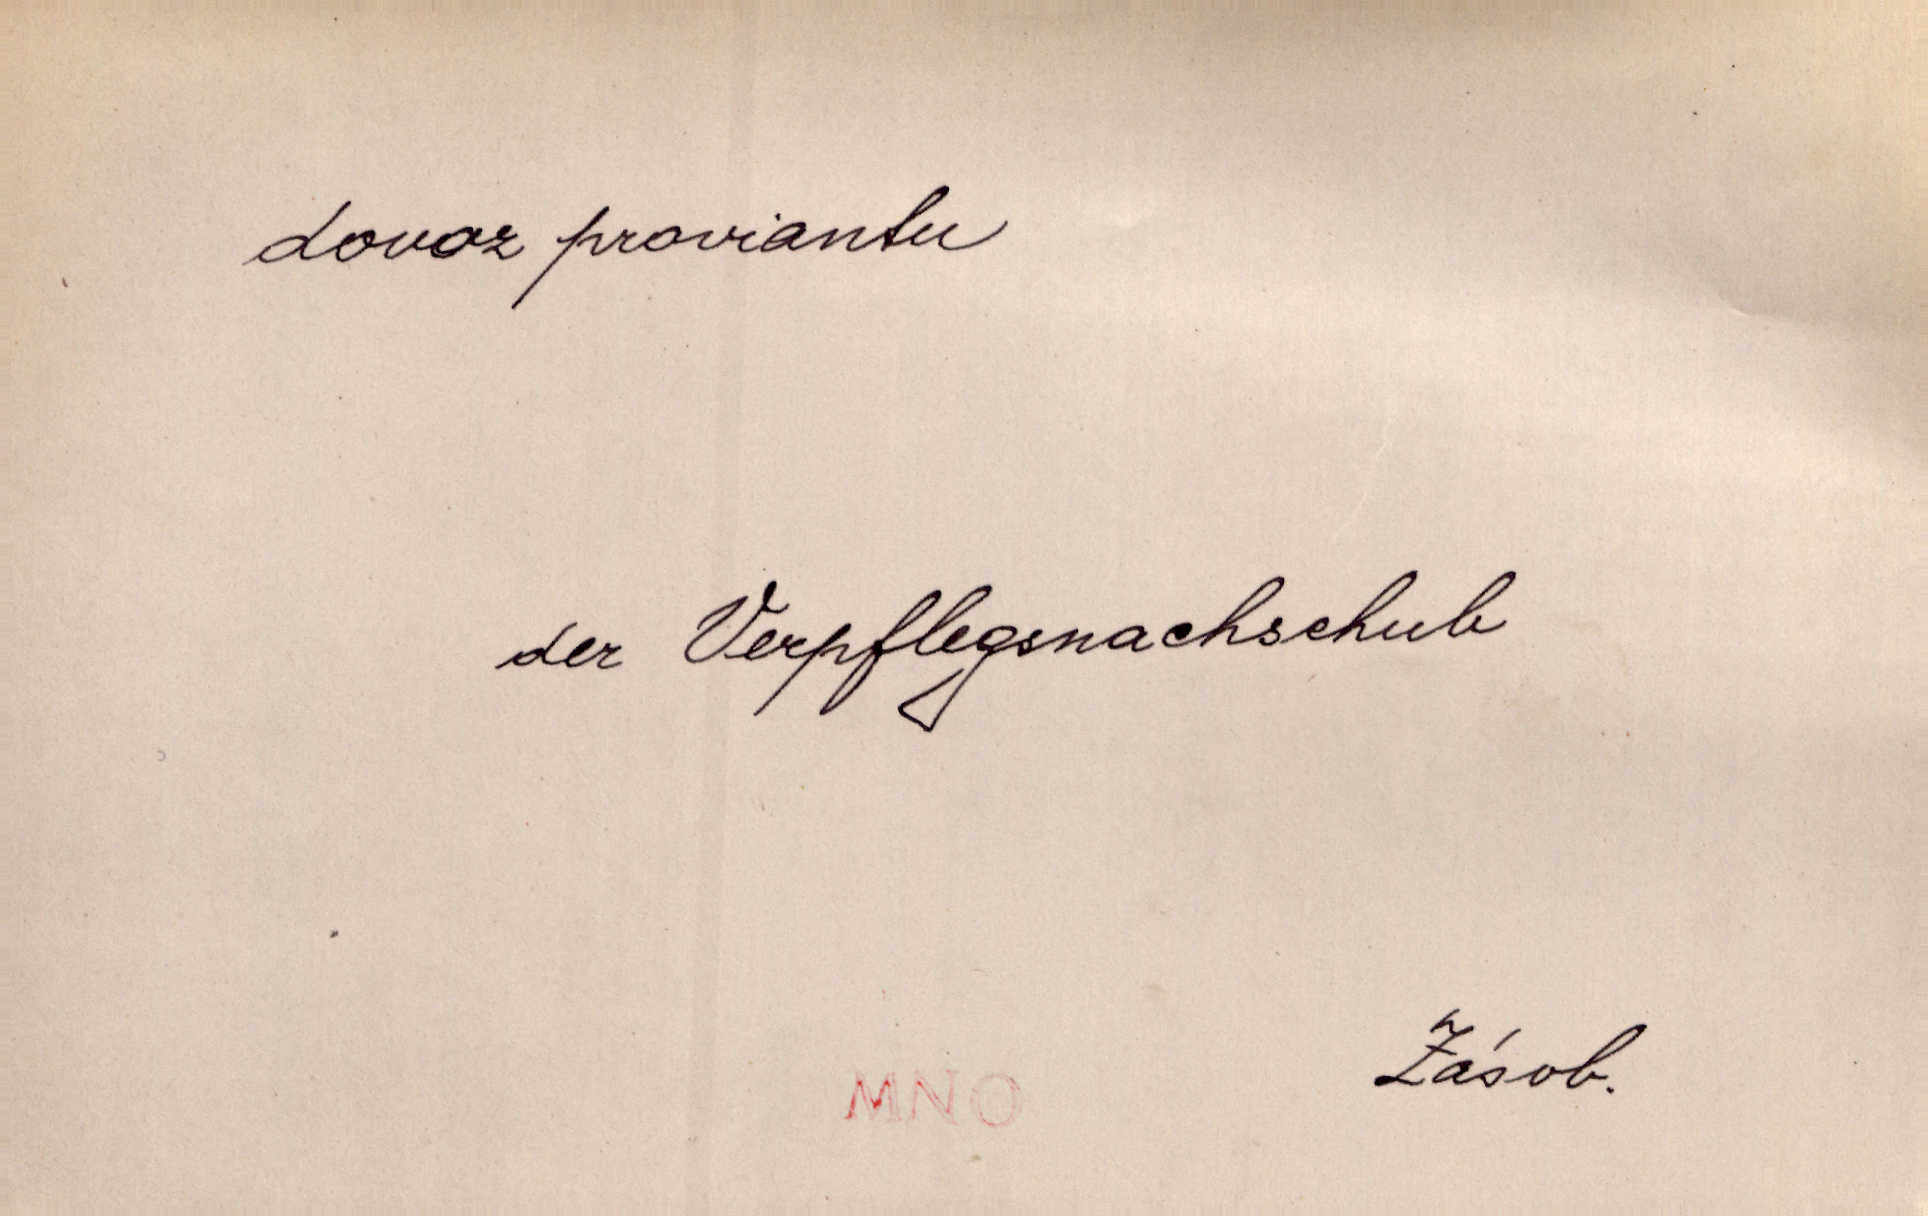 dovoz proviantu
der Verpflegsnachschub
Zásob.
MNO